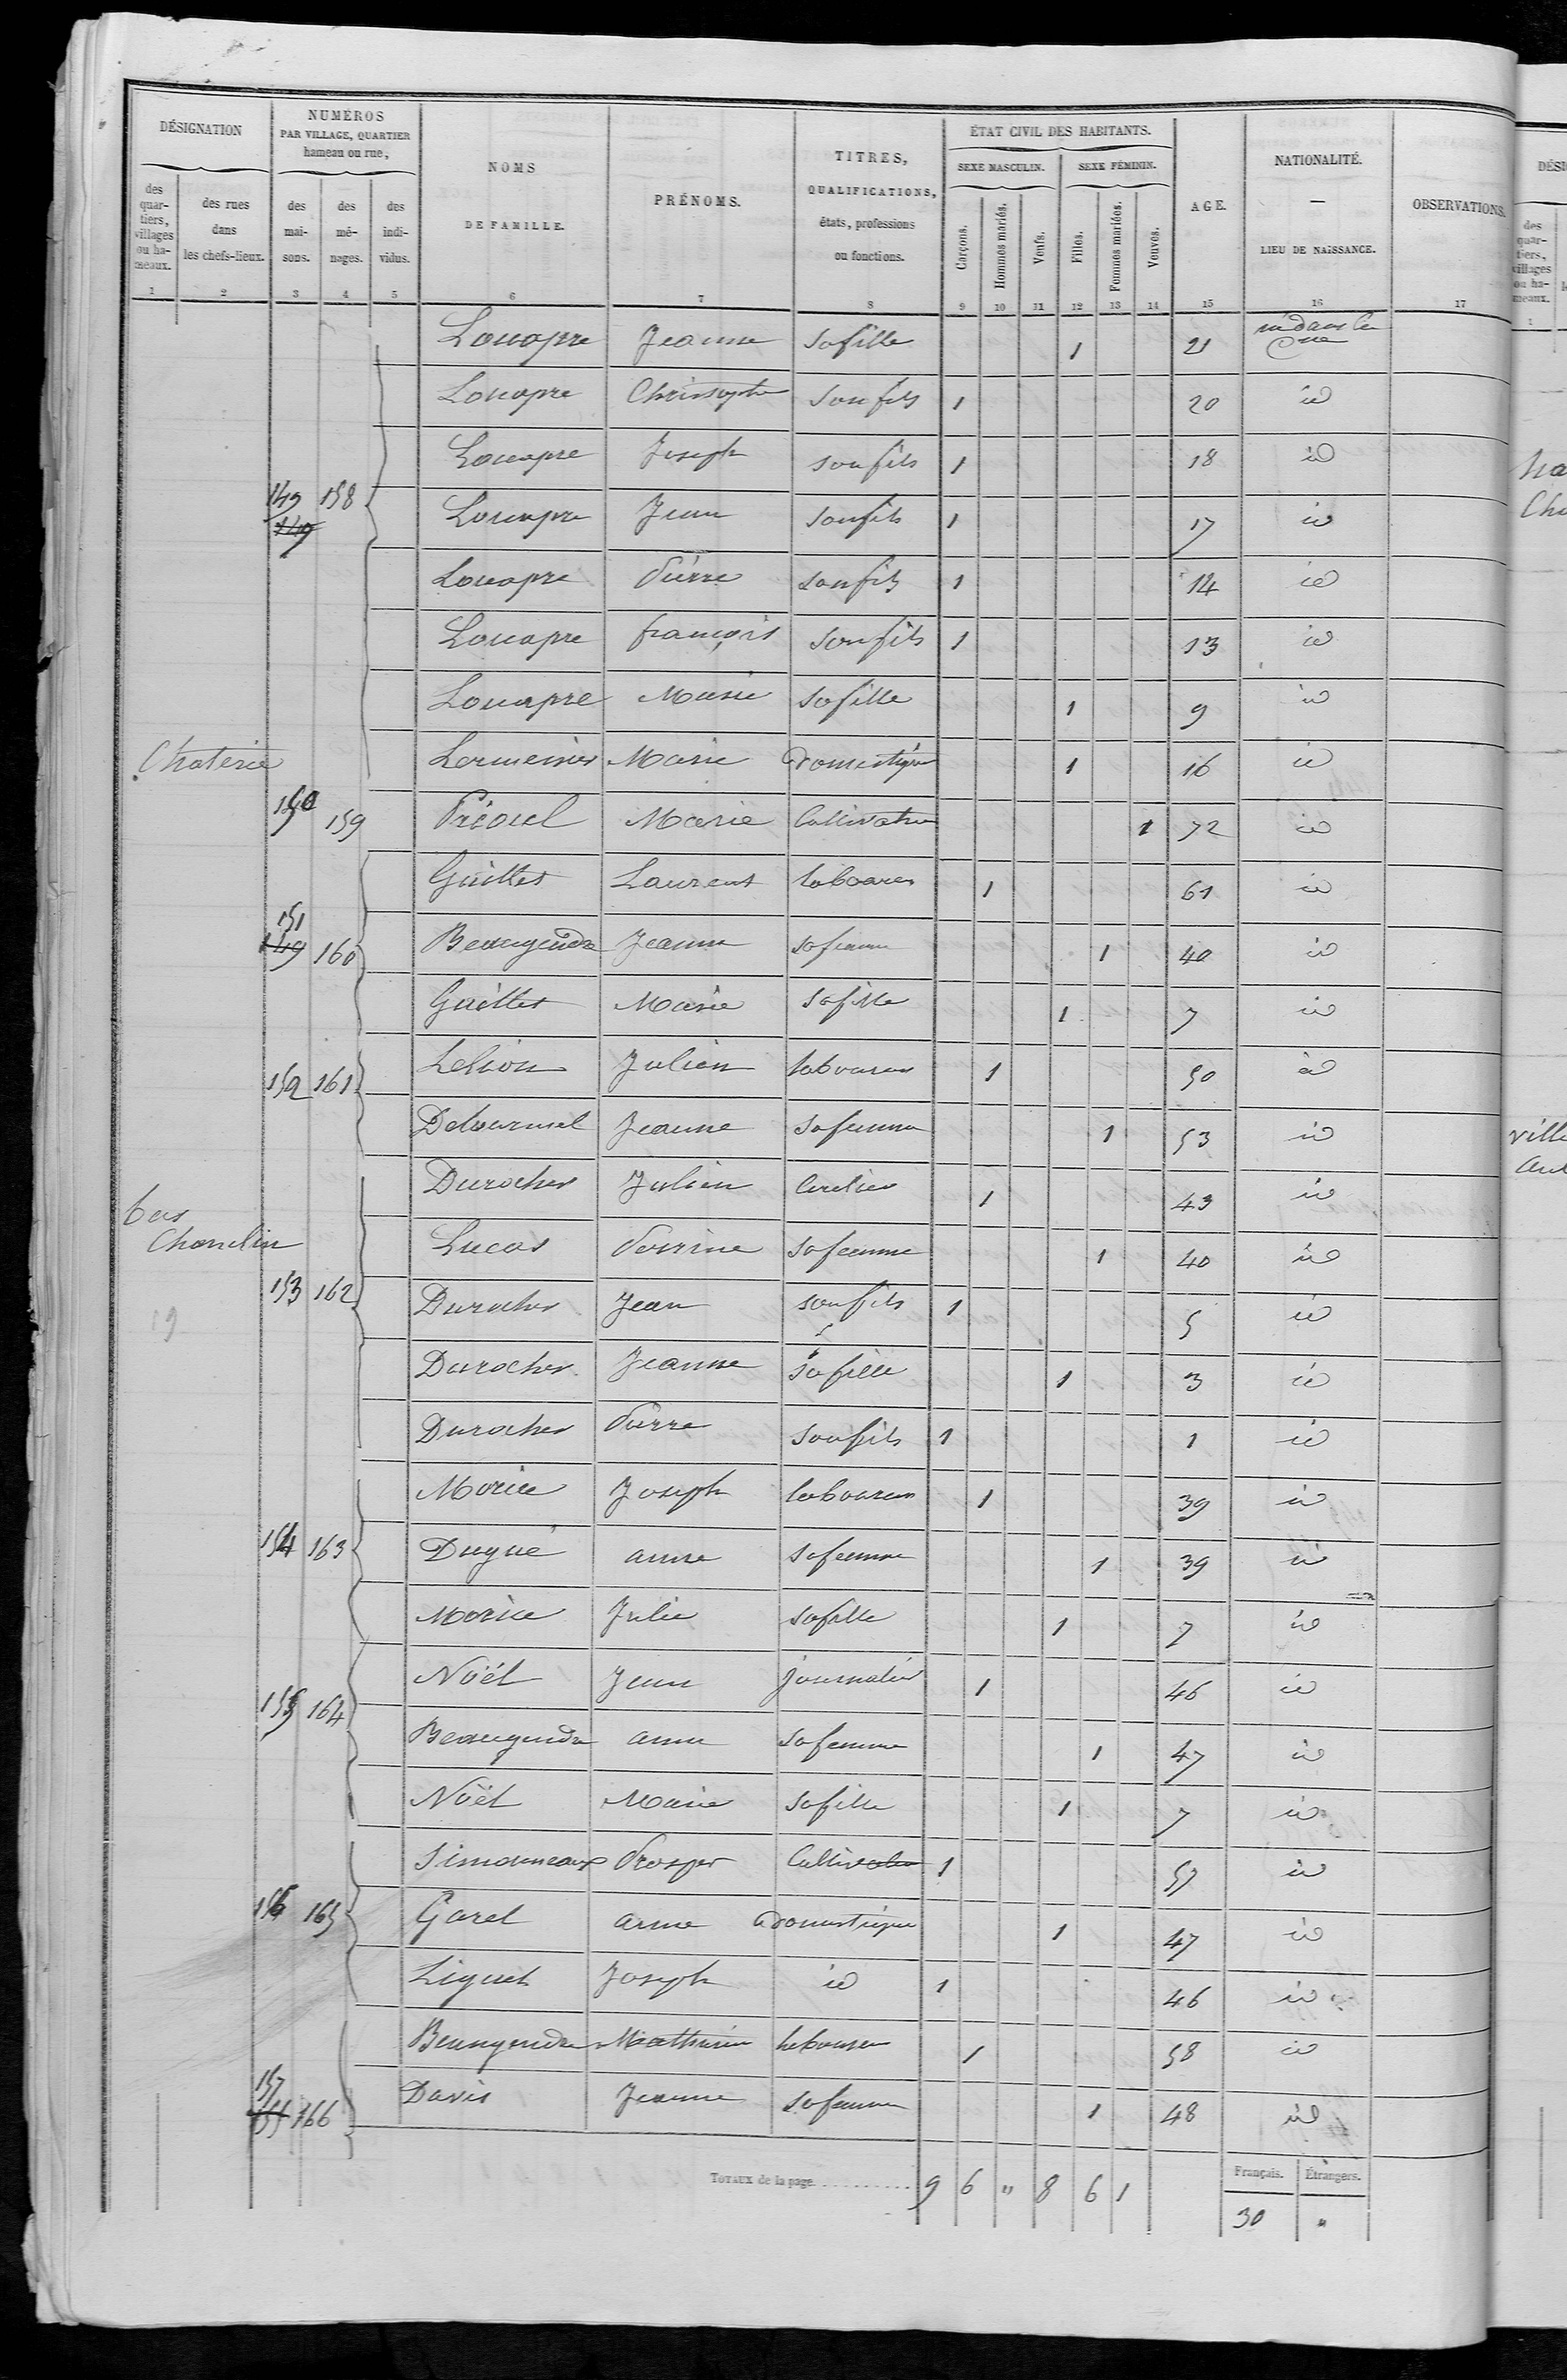 DÉSIGNATION
NUMÉROS
PAR VILLAGE, QUARTIER
hameau ou rue,
NOMS
DE FAMILLE.
PRÉNOMS.
TITRES,
QUALIFICATIONS,
états, professions
ou fonctions.
ÉTAT CIVIL DES HABITANTS.
SEXE MASCULIN. SEXE FÉMININ.
AGE.
NATIONALITÉ.
—
LIEU DE NAISSANCE.
OBSERVATIONS.
des
quar-
tiers,
villages
ou ha-
meaux.
des rues
dans
les chefs-lieux.
des
mai-
sons.
des
mé-
nages.
des
indi-
vidus.
Garçons. Hommes mariés. Veufs. Filles. Femmes mariées. Veuves.
1 2 3 4 5 6 7 8 9 10 11 12 13 14 15 16 17
Louapre Jeanne sa fille 1 21 né dans la Cne
Louapre Christophe son fils 1 20 id
Louapre Joseph son fils 1 18 id
149 158 Louapre Jean son fils 1 17 id
149
Louapre Pierre son fils 1 14 id
Louapre françois son fils 1 13 id
Louapre Marie sa fille 1 9 id
Chaterie Marie domestique 1 16 id
150 159 Préoul Marie Cultivatrice 1 72 id
Guillet Laurent laboureur 1 61 id
151
149 160 Beaugendre Jeanne sa femme 1 40 id
Guillet Marie sa fille 1 7 id
152 161 Lelion Julien laboureur 1 50 id
Delourmel Jeanne sa femme 1 53 id
Durocher Julien Cerclier 1 43 id
bas
Chandlin
Lucas Perrine sa femme 1 40 id
153 162 Durocher Jean son fils 1 5 id
19
Durocher Jeanne sa fille 1 3 id
Durocher Pierre son fils 1 1 id
Morice Joseph laboureur 1 39 id
154 163 Dugué anne sa femme 1 39 id
Morice Julie sa fille 1 7 id
Noël Jean journalier 1 46 id
155 164
Beaugendre anne sa femme 1 47 id
Noël Marie sa fille 1 7 id
Simonneaux Prosper Cultivateur 1 57 id
156 165 Garel anne domestique 1 47 id
Liguet Joseph id 1 46 id
Beaugendre Mathurin laboureur 1 58 id
157
166 Davis Jeanne sa femme 1 48 id
TOTAUX de la page.......... 9 6 " 8 6 1
Français. Étrangers.
30 "